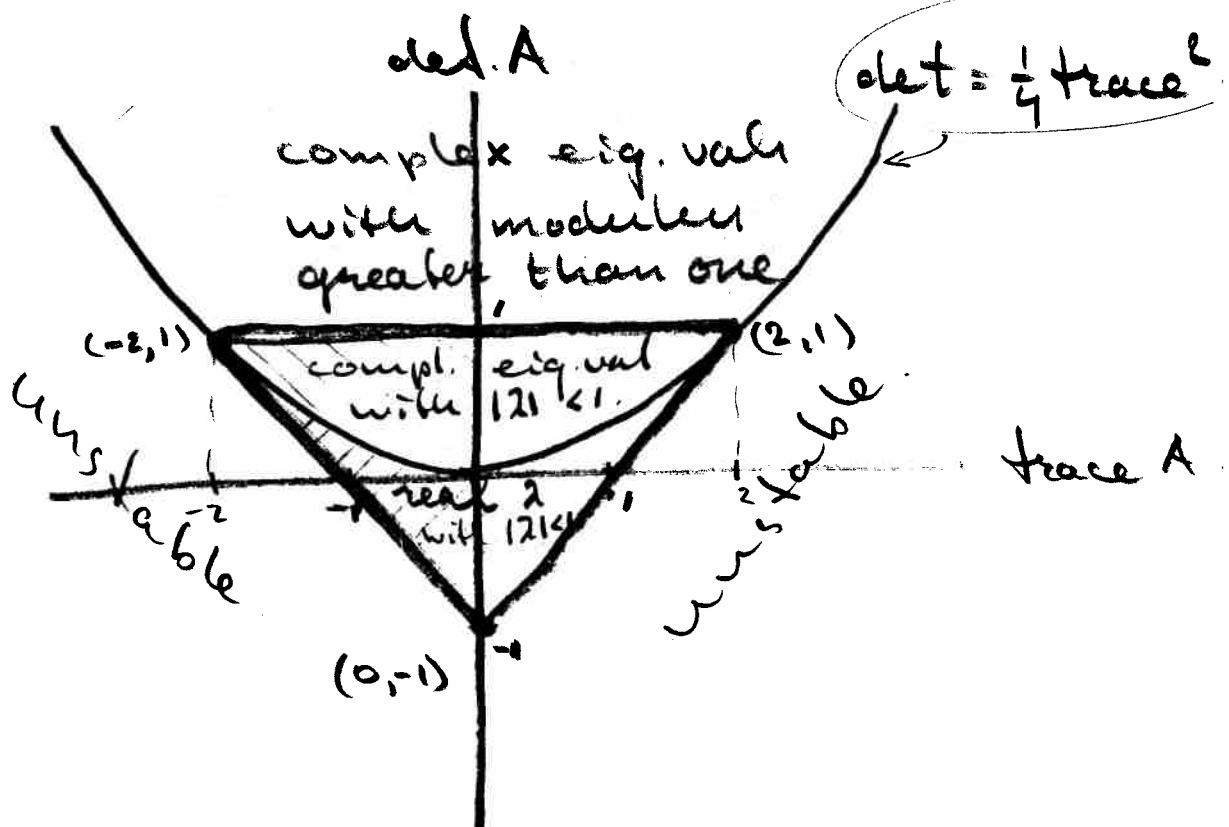 det. A
det = 1/4 trace²
complex eig. vals
with modulus
greater than one
1
(-2,1)
(2,1)
compl. eig. val
with |λ| <1.
unstable
unstable
trace A
-2
-1
1
2
real λ
with |λ|<1
-1
(0,-1)